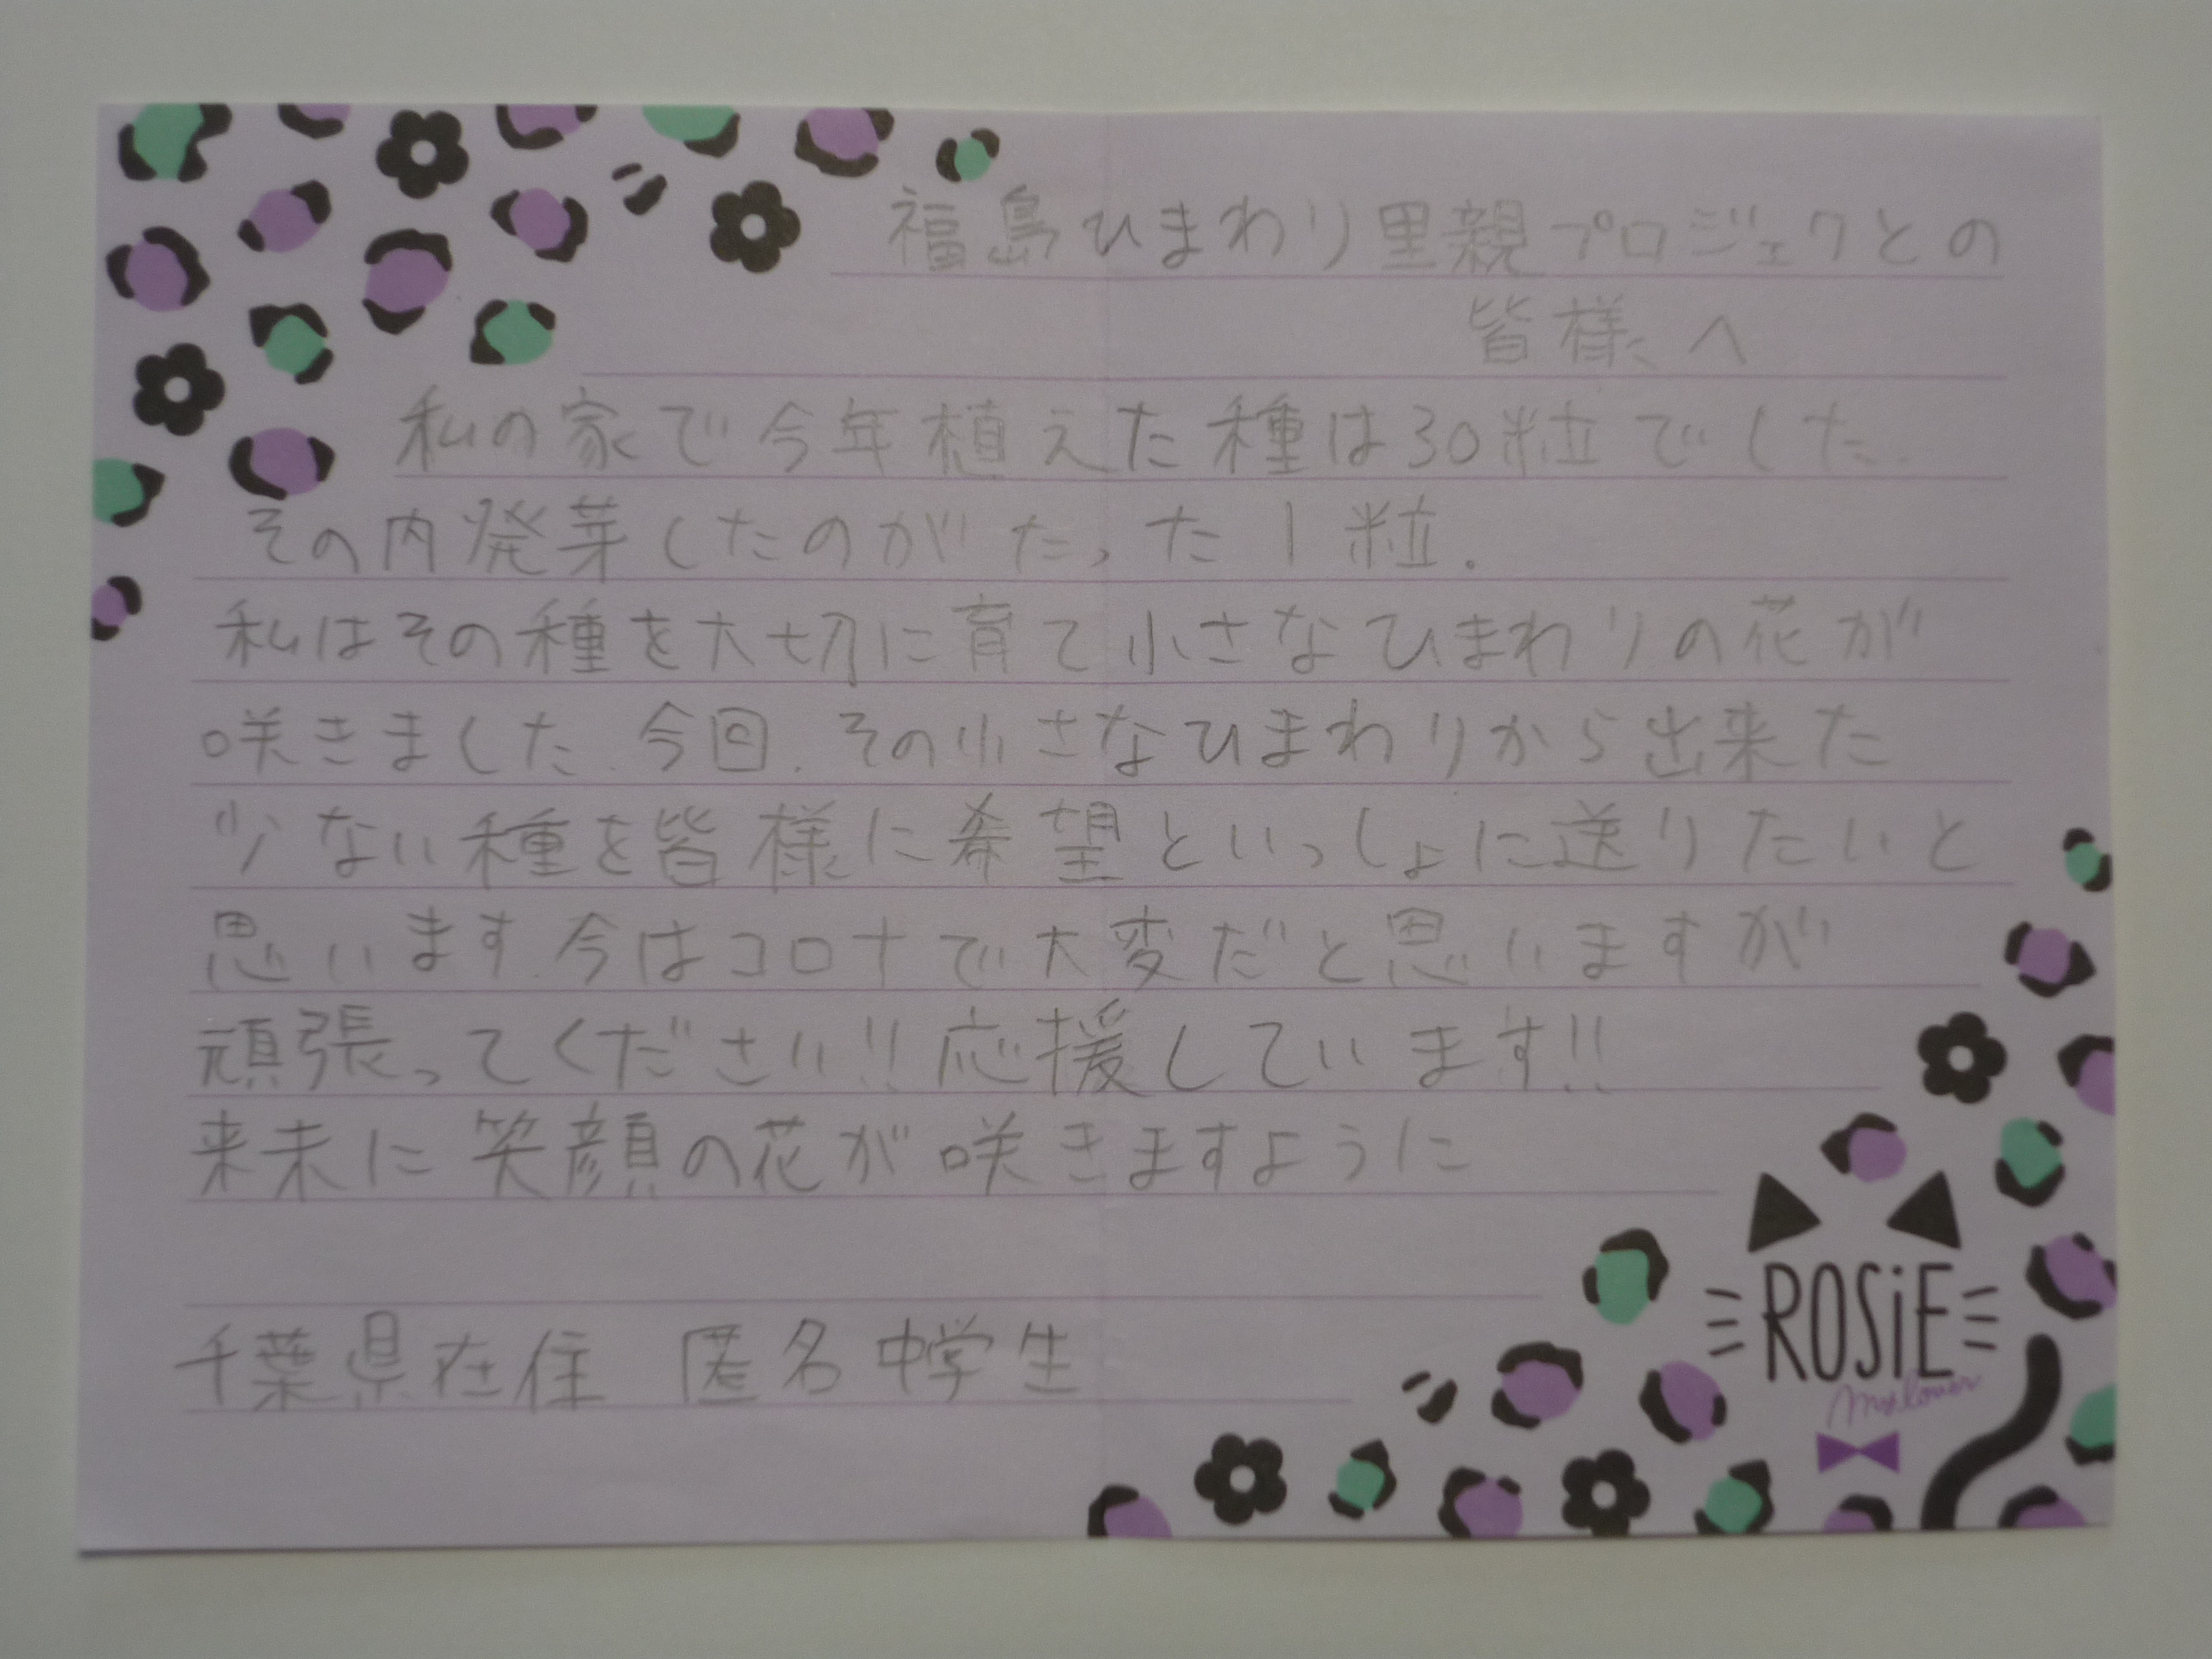 福島ひまわり里親プロジェクとの
皆様へ
私の家で今年植えた種は30粒でした.
その内発芽したのがたった1粒.
私はその種を大切に育て小さなひまわりの花が
咲きました.今回.その小さなひまわりから出来た
少ない種を皆様に希望といっしょに送りたいと
思います.今はコロナで大変だと思いますが
頑張ってください!!応援しています!!
来未に笑顔の花が咲きますように
千葉県在住 匿名中学生
ROSiE